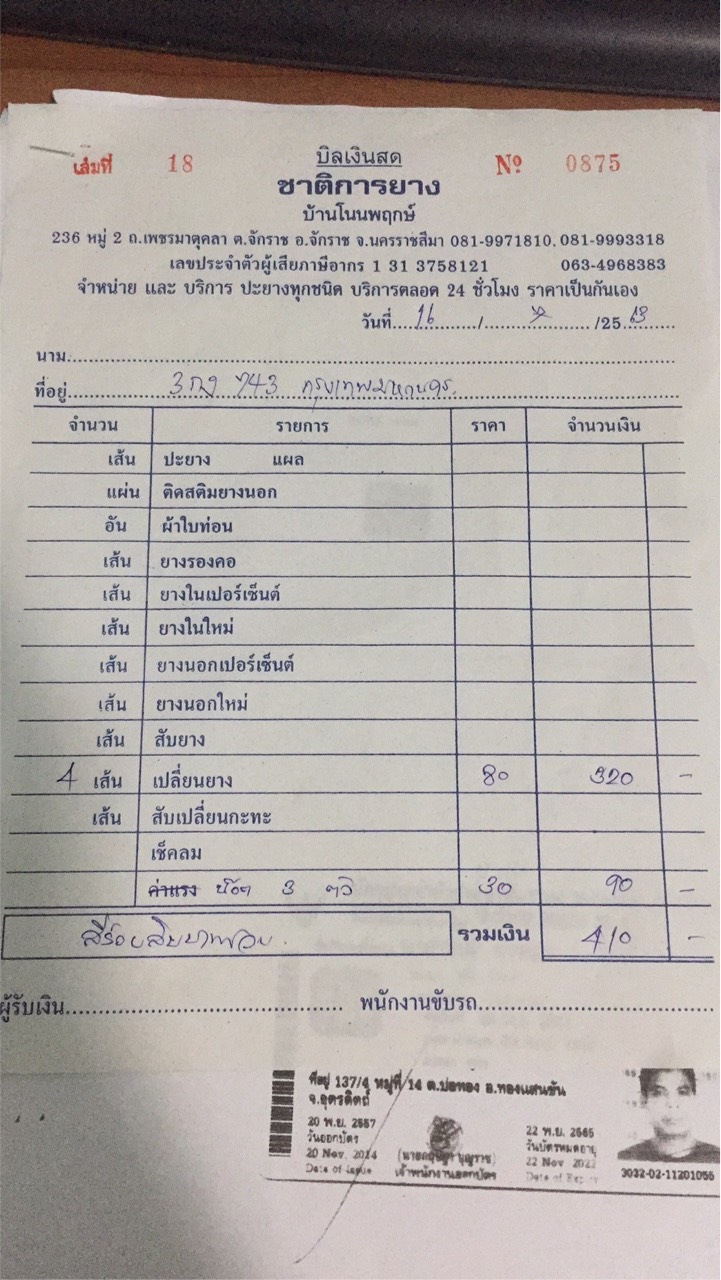 บิลเงินสด
เล่มที่ 18 Nº 0875
ชาติการยาง
บ้านโนนพฤกษ์
236 หมู่ 2 ถ.เพชรมาตุคลา ต.จักราช อ.จักราช จ.นครราชสีมา 081-9971810, 081-9993318
เลขประจำตัวผู้เสียภาษีอากร 1 31 3758121 063-4968383
จำหน่าย และ บริการ ปะยางทุกชนิด บริการตลอด 24 ชั่วโมง ราคาเป็นกันเอง
วันที่ 16 / / 25 63
นาม
ที่อยู่ 3กง 743 กรุงเทพมหานคร.
จำนวน รายการ ราคา จำนวนเงิน
เส้น ปะยาง แผล
แผ่น ติดสติมยางนอก
อัน ผ้าใบท่อน
เส้น ยางรองคอ
เส้น ยางในเปอร์เซ็นต์
เส้น ยางในใหม่
เส้น ยางนอกเปอร์เซ็นต์
เส้น ยางนอกใหม่
เส้น สับยาง
4 เส้น เปลี่ยนยาง 80 320 -
เส้น สับเปลี่ยนกะทะ
เช็คลม
ค่าแรง น๊อต 3 ตัว 30 90 -
สี่ร้อยสิบบาทถ้วน. รวมเงิน 410 -
ผู้รับเงิน พนักงานขับรถ
ที่อยู่ 137/4 หมู่ที่ 14 ต.บ่อทอง อ.ทองแสนขัน
จ.อุตรดิตถ์
20 พ.ย. 2557 22 พ.ย. 2565
วันออกบัตร วันบัตรหมดอายุ
20 Nov. 2014 22 Nov 2022
Date of Issue เจ้าพนักงานออกบัตร Date of Expiry
3032-02-11201056